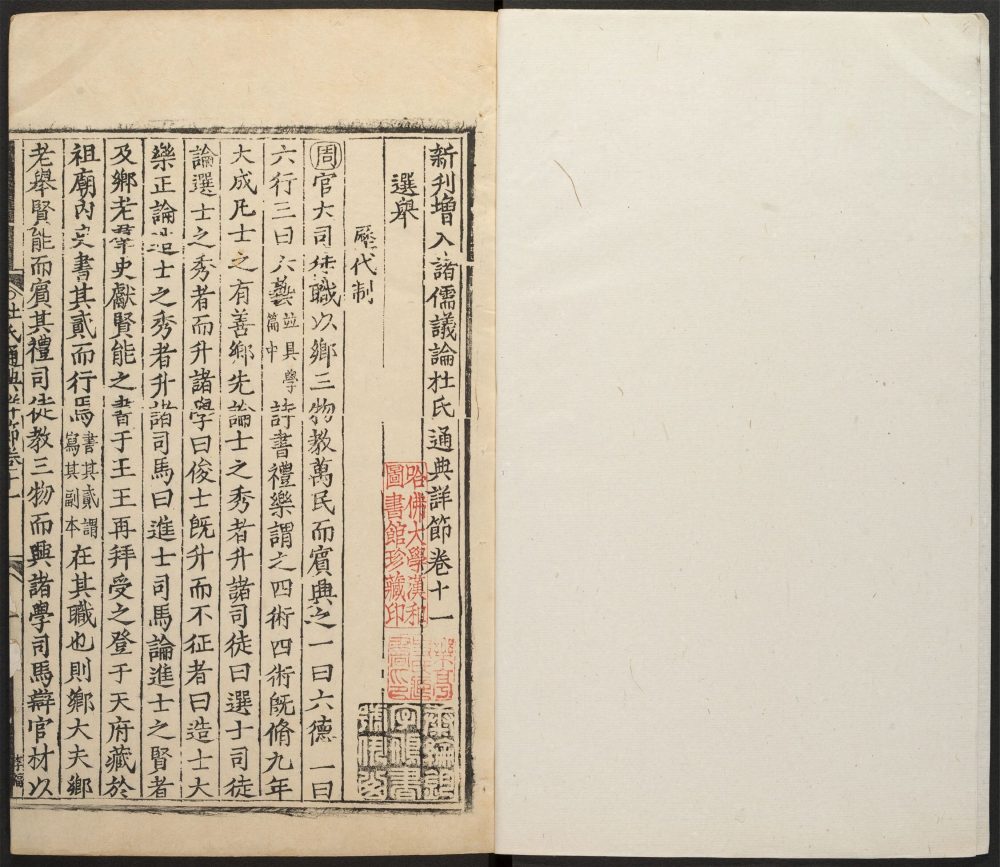 新刊增入諸儒議論杜氏通典詳節卷十一
選舉
歷代制
周官大司徒職以鄉三物教萬民而賓興之一曰六德一曰
六行三曰六藝並具學篇中詩書禮樂謂之四術四術既脩九年
大成凡士之有善鄉先論士之秀者升諸司徒曰選士司徒
論選士之秀者而升諸學曰俊士既升而不征者曰造士大
樂正論造士之秀者升諸司馬曰進士司馬論進士之賢者
及鄉老羣吏獻賢能之書于王王再拜受之登于天府藏於
祖廟內史書其貳而行焉書其貳謂寫其副本在其職也則鄉大夫鄉
老舉賢能而賓其禮司徒教三物而興諸學司馬辯官材以
杜氏通典詳節卷十一
哈佛大學漢和
圖書館珍藏印